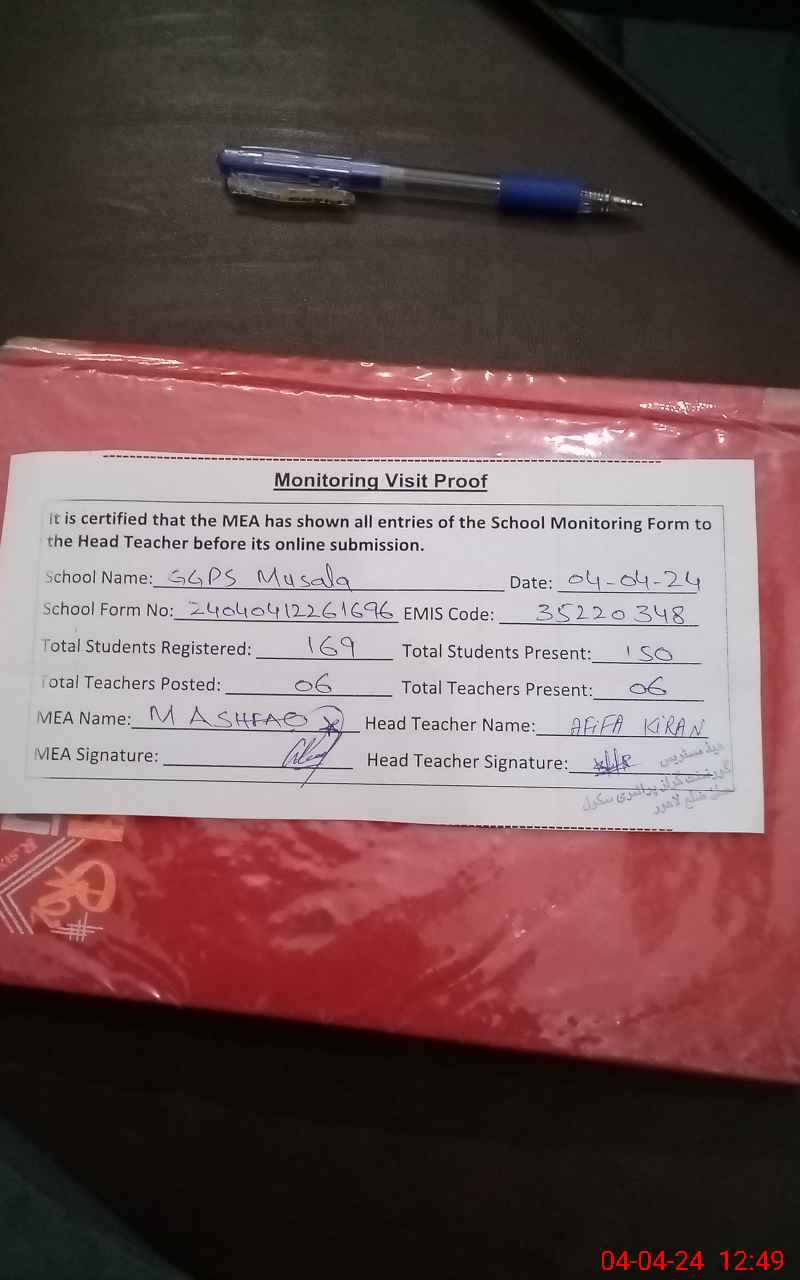 Monitoring Visit Proof
It is certified that the MEA has shown all entries of the School Monitoring Form to
the Head Teacher before its online submission.
School Name: GGPS Musala Date: 04-04-24
School Form No: 24040412261696 EMIS Code: 35220348
Total Students Registered: 169 Total Students Present: 150
Total Teachers Posted: 06 Total Teachers Present: 06
MEA Name: M ASHFAQ Head Teacher Name: AFIFA KIRAN
MEA Signature: Head Teacher Signature:
ہیڈ مسٹریس
گورنمنٹ گرلز پرائمری سکول
ضلع لاہور
04-04-24 12:49